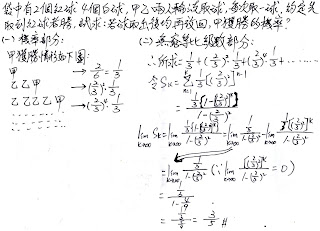 袋中有2個紅球4個白球,甲乙兩人輪流取球,每次取一球,約定先
取到紅球者勝,試求:若球取後均再放回,甲獲勝的機率?
(一)機率部分:
甲獲勝情形如下圖:
甲 → 2/6 = 1/3
乙乙甲 → (2/3)²·1/3
乙乙乙乙甲 → (2/3)⁴·1/3
(二)無窮等比級數部分:
∴所求=1/3+(2/3)²·1/3+(2/3)⁴·1/3+……
令Sₖ=Σ 1/3[(2/3)²]ⁿ⁻¹
= 1/3{1-[(2/3)²]ᵏ} / 1-(2/3)²
lim Sₖ = lim 1/3{1-[(2/3)²]ᵏ} / 1-(2/3)² = lim 1/3 / 1-(2/3)² - lim 1/3[(2/3)²]ᵏ / 1-(2/3)²
k→∞
= lim 1/3 / 1-(2/3)² (∵ lim 1/3[(2/3)²]ᵏ / 1-(2/3)² = 0)
= 1/3 / 1-4/9
= 1/3 / 5/9 = 3/5 #